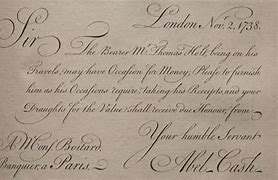 London Nov.r 2, 1738.
Sir
The Bearer Mr. Thomas Halt, being on his
Travels, may have Occasion for Money; Please to furnish
him as his Occasions require; taking his Receipts, and your
Draughts for the Value; shall receive due Honour, from
Your humble Servant
A Monsr. Boitard,
Banquier, a Paris.
Abel Cash.